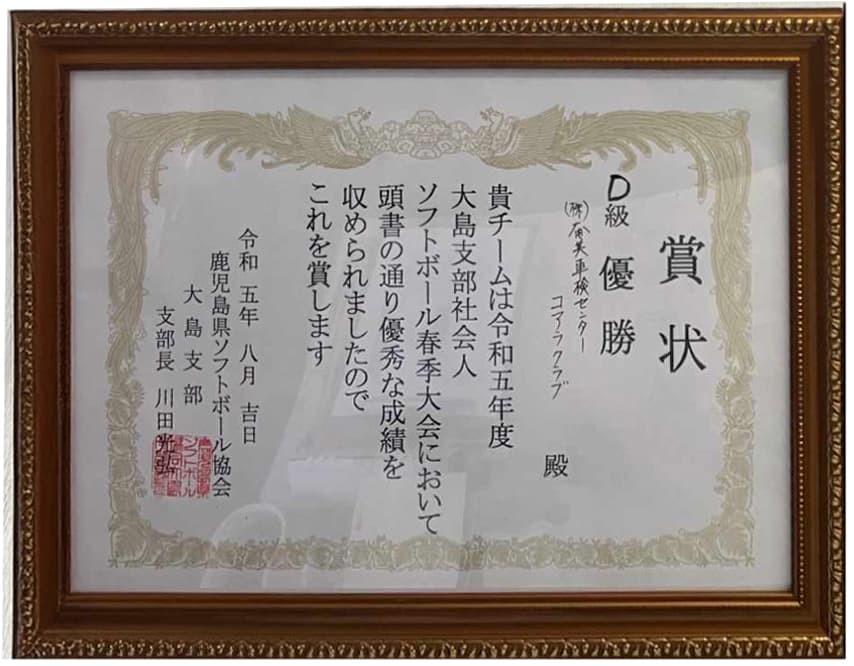 賞状
D級 優勝
(株)奄美車検センター
コアラクラブ
殿
貴チームは令和五年度
大島支部社会人
ソフトボール春季大会において
頭書の通り優秀な成績を
収められましたので
これを賞します
令和 五年 八月 吉日
鹿児島県ソフトボール協会
大島支部
支部長 川田光弘